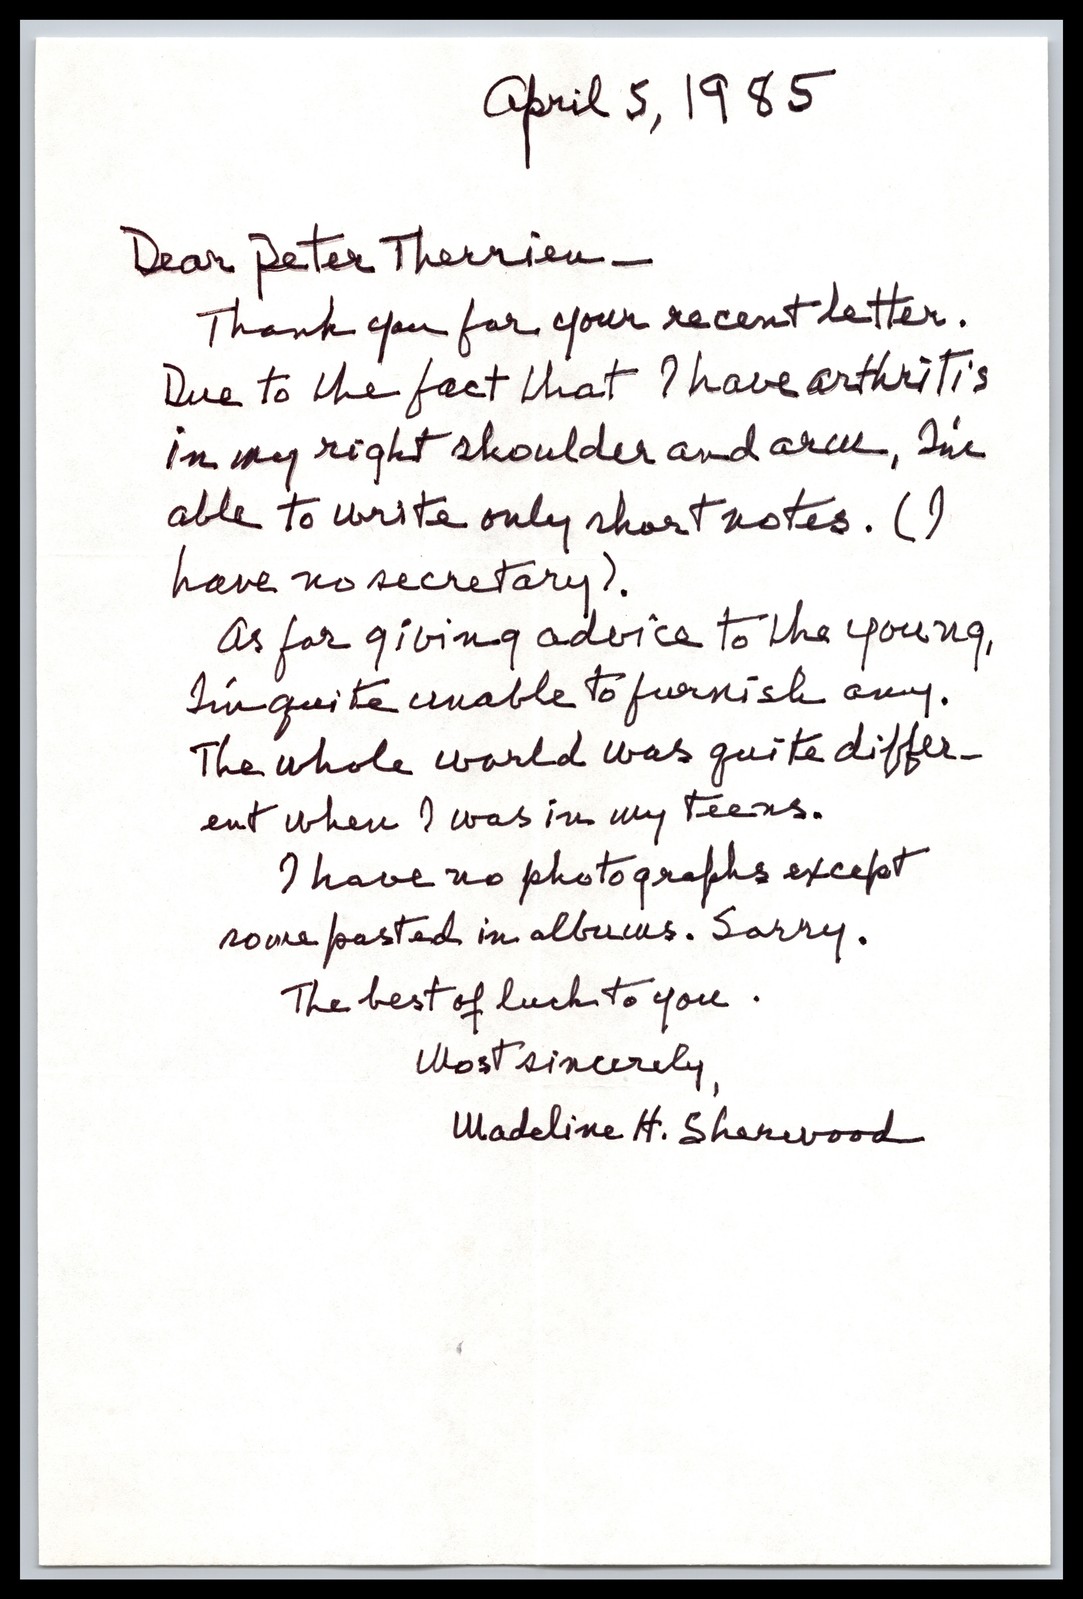 April 5, 1985
Dear Peter Therrien—
Thank you for your recent letter.
Due to the fact that I have arthritis
in my right shoulder and arm, I'm
able to write only short notes. (I
have no secretary).
As for giving advice to the young,
I'm quite unable to furnish any.
The whole world was quite differ-
ent when I was in my teens.
I have no photographs except
some pasted in albums. Sorry.
The best of luck to you.
Most sincerely,
Madeline H. Sherwood